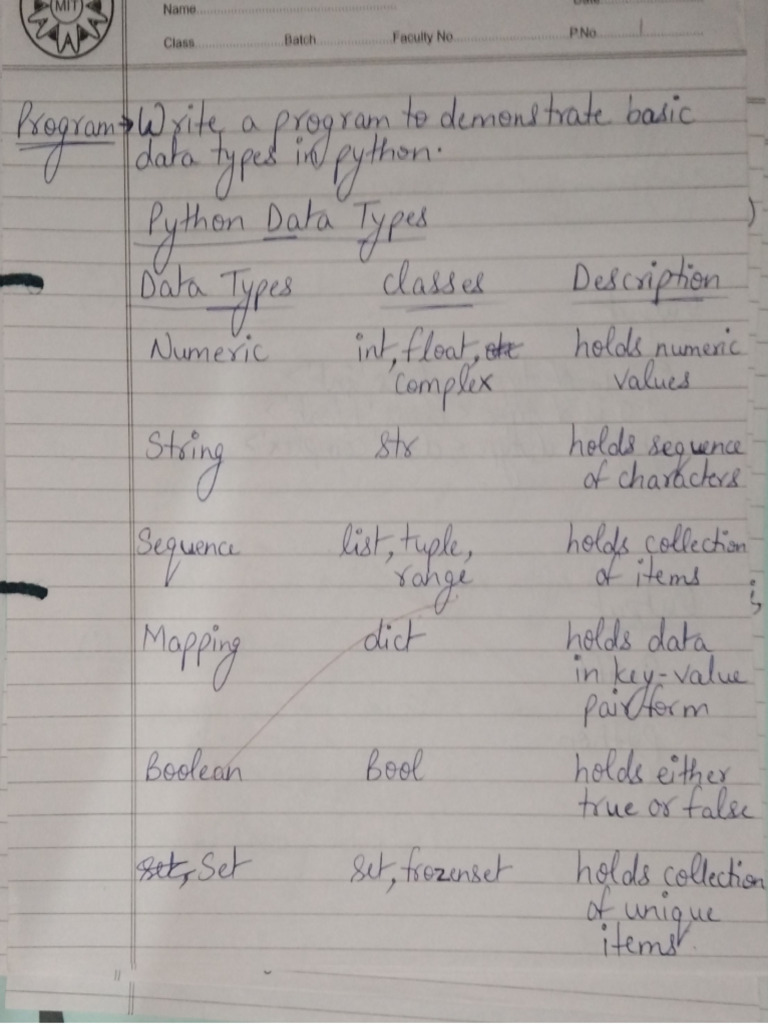 MIT
Name
Class Batch Faculty No. P.No.
Program → Write a program to demonstrate basic
data types in python.
Python Data Types
Data Types classes Description
Numeric int, float, holds numeric
complex values
String str holds sequence
of characters
Sequence list, tuple, holds collection
range of items
Mapping dict holds data
in key-value
pair form
Boolean Bool holds either
true or false
set, Set set, frozenset holds collection
of unique
items.